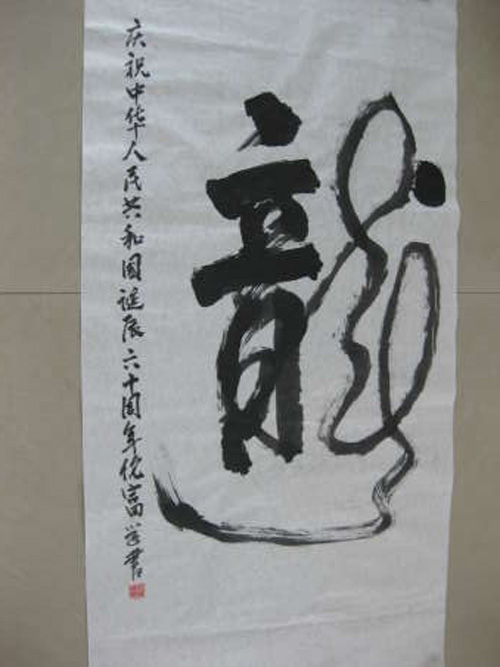 龍
庆祝中华人民共和国诞辰六十周年倪富学书